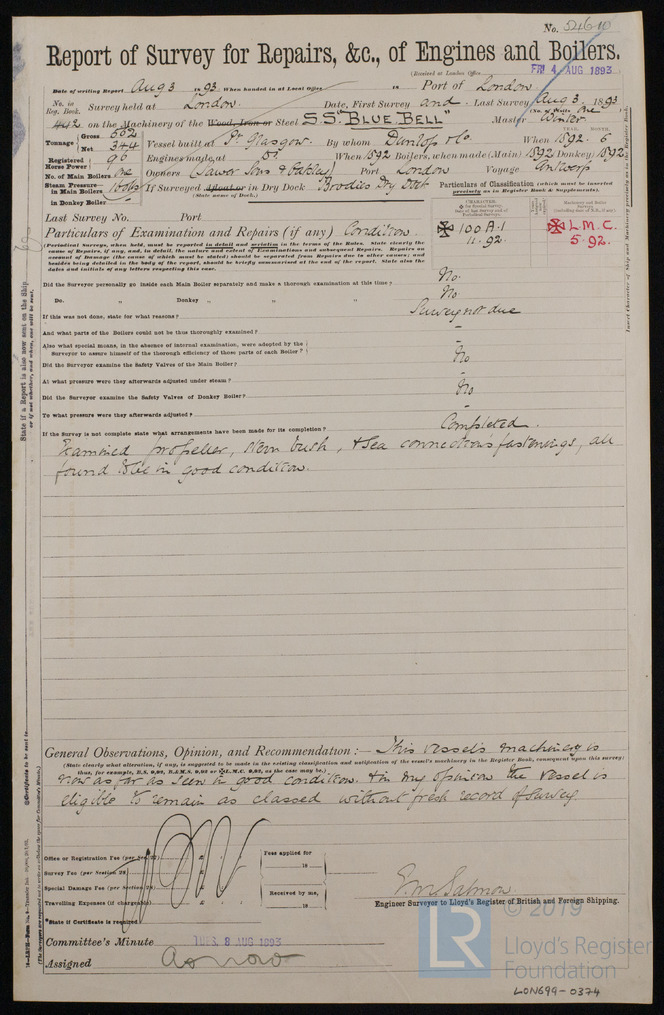 No. 52610
Report of Survey for Repairs, &c., of Engines and Boilers.
(Received at London Office FRI 4 AUG 1893
Date of writing Report Aug 3 1893 When handed in at Local Office Port of London
No. in Reg. Book. Survey held at London. Date, First Survey and Last Survey Aug 3 1893
(No. of Visits One
442 on the Machinery of the Wood, Iron or Steel S.S. "BLUE BELL" Master Winter
Tonnage Gross 562 Net 344
Vessel built at Pt Glasgow. By whom Dunlop & Co. When 1892. 5
YEAR. MONTH.
Registered Horse Power 96
Engines made at Do. When 1892 Boilers, when made (Main) 1892 (Donkey) 1892
No. of Main Boilers One
Owners Port London Voyage Antwerp
Steam Pressure in Main Boilers 160 lbs
in Donkey Boiler
If Surveyed Afloat or in Dry Dock Brodies Dry Dock
(State name of Dock.)
Particulars of Classification (which must be inserted precisely as in Register Book & Supplements).
Last Survey No. Port
100 A.1 11.92.
L.M.C. 5.92.
Particulars of Examination and Repairs (if any) Condition
(Periodical Surveys, when held, must be reported in detail and seriatim in the terms of the Rules. State clearly the
cause of Repairs, if any, and, in detail, the nature and extent of Examinations and subsequent Repairs. Repairs on
account of Damage (the cause of which must be stated) should be separated from Repairs due to other causes; and
besides being detailed in the body of the report, should be briefly summarised at the end of the report. State also the
dates and initials of any letters respecting this case.
Did the Surveyor personally go inside each Main Boiler separately and make a thorough examination at this time? No.
Do. " Donkey " " " No
If this was not done, state for what reasons? Survey not due
And what parts of the Boilers could not be thoroughly examined? –
Also what special means, in the absence of internal examination, were adopted by the
Surveyor to assure himself of the thorough efficiency of those parts of each Boiler? –
Did the Surveyor examine the Safety Valves of the Main Boiler? No
At what pressure were they afterwards adjusted under steam? –
Did the Surveyor examine the Safety Valves of Donkey Boiler? No
To what pressure were they afterwards adjusted? –
If the Survey is not complete state what arrangements have been made for its completion? Completed.
Examined propeller, stern bush, & sea connections fastenings, all
found to be in good condition.
General Observations, Opinion, and Recommendation:— This vessels machinery is
(State clearly what alteration, if any, is suggested to be made in the existing classification and notification of the vessel's machinery in the Register Book, consequent upon this survey;
thus, for example, B.S. 9,92, B.&M.S. 9,92 or L.M.C. 9,92, as the case may be.)
now as far as seen in good condition. & in my opinion the vessel is
eligible to remain as classed without fresh record of survey.
Office or Registration Fee (per Sec. 27)
Survey Fee (per Section 28)
Special Damage Fee (per Section 28)
Travelling Expenses (if chargeable)
Fees applied for 18
Received by me, 18
*State if Certificate is required
E.W. Salmon
Engineer Surveyor to Lloyd's Register of British and Foreign Shipping.
Committee's Minute TUES. 8 AUG 1893
Assigned as now
© 2019
LR
Lloyd's Register
Foundation
LON699-0374
State if a Report is also now sent on the Ship
or if not, whether, and when, one will be sent.
Insert Character of Ship and Machinery precisely as in the Register Book